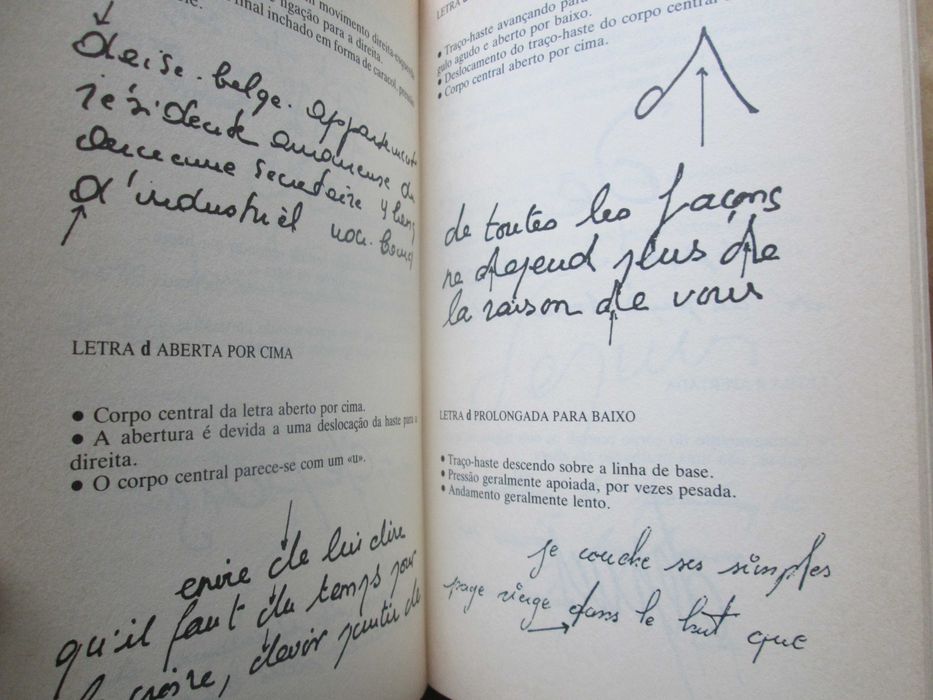 movimento direita-esquerda
ligação para a direita.
final inchado em forma de caracol,
deise. belge. appartement
résidente
secretaire
d'industriel non.
LETRA d ABERTA POR CIMA
● Corpo central da letra aberto por cima.
● A abertura é devida a uma deslocação da haste para a
direita.
● O corpo central parece-se com um «u».
envie de lui dire
qu'il faut du temps pour
croire, devoir partir de
LETRA d
● Traço-haste avançando para
gulo agudo e aberto por baixo.
● Deslocamento do traço-haste do corpo central
● Corpo central aberto por cima.
de toutes les façons
ne depend plus de
la raison de vous
LETRA d PROLONGADA PARA BAIXO
● Traço-haste descendo sobre a linha de base.
● Pressão geralmente apoiada, por vezes pesada.
● Andamento geralmente lento.
je couche ses simples
page vierge dans le but que